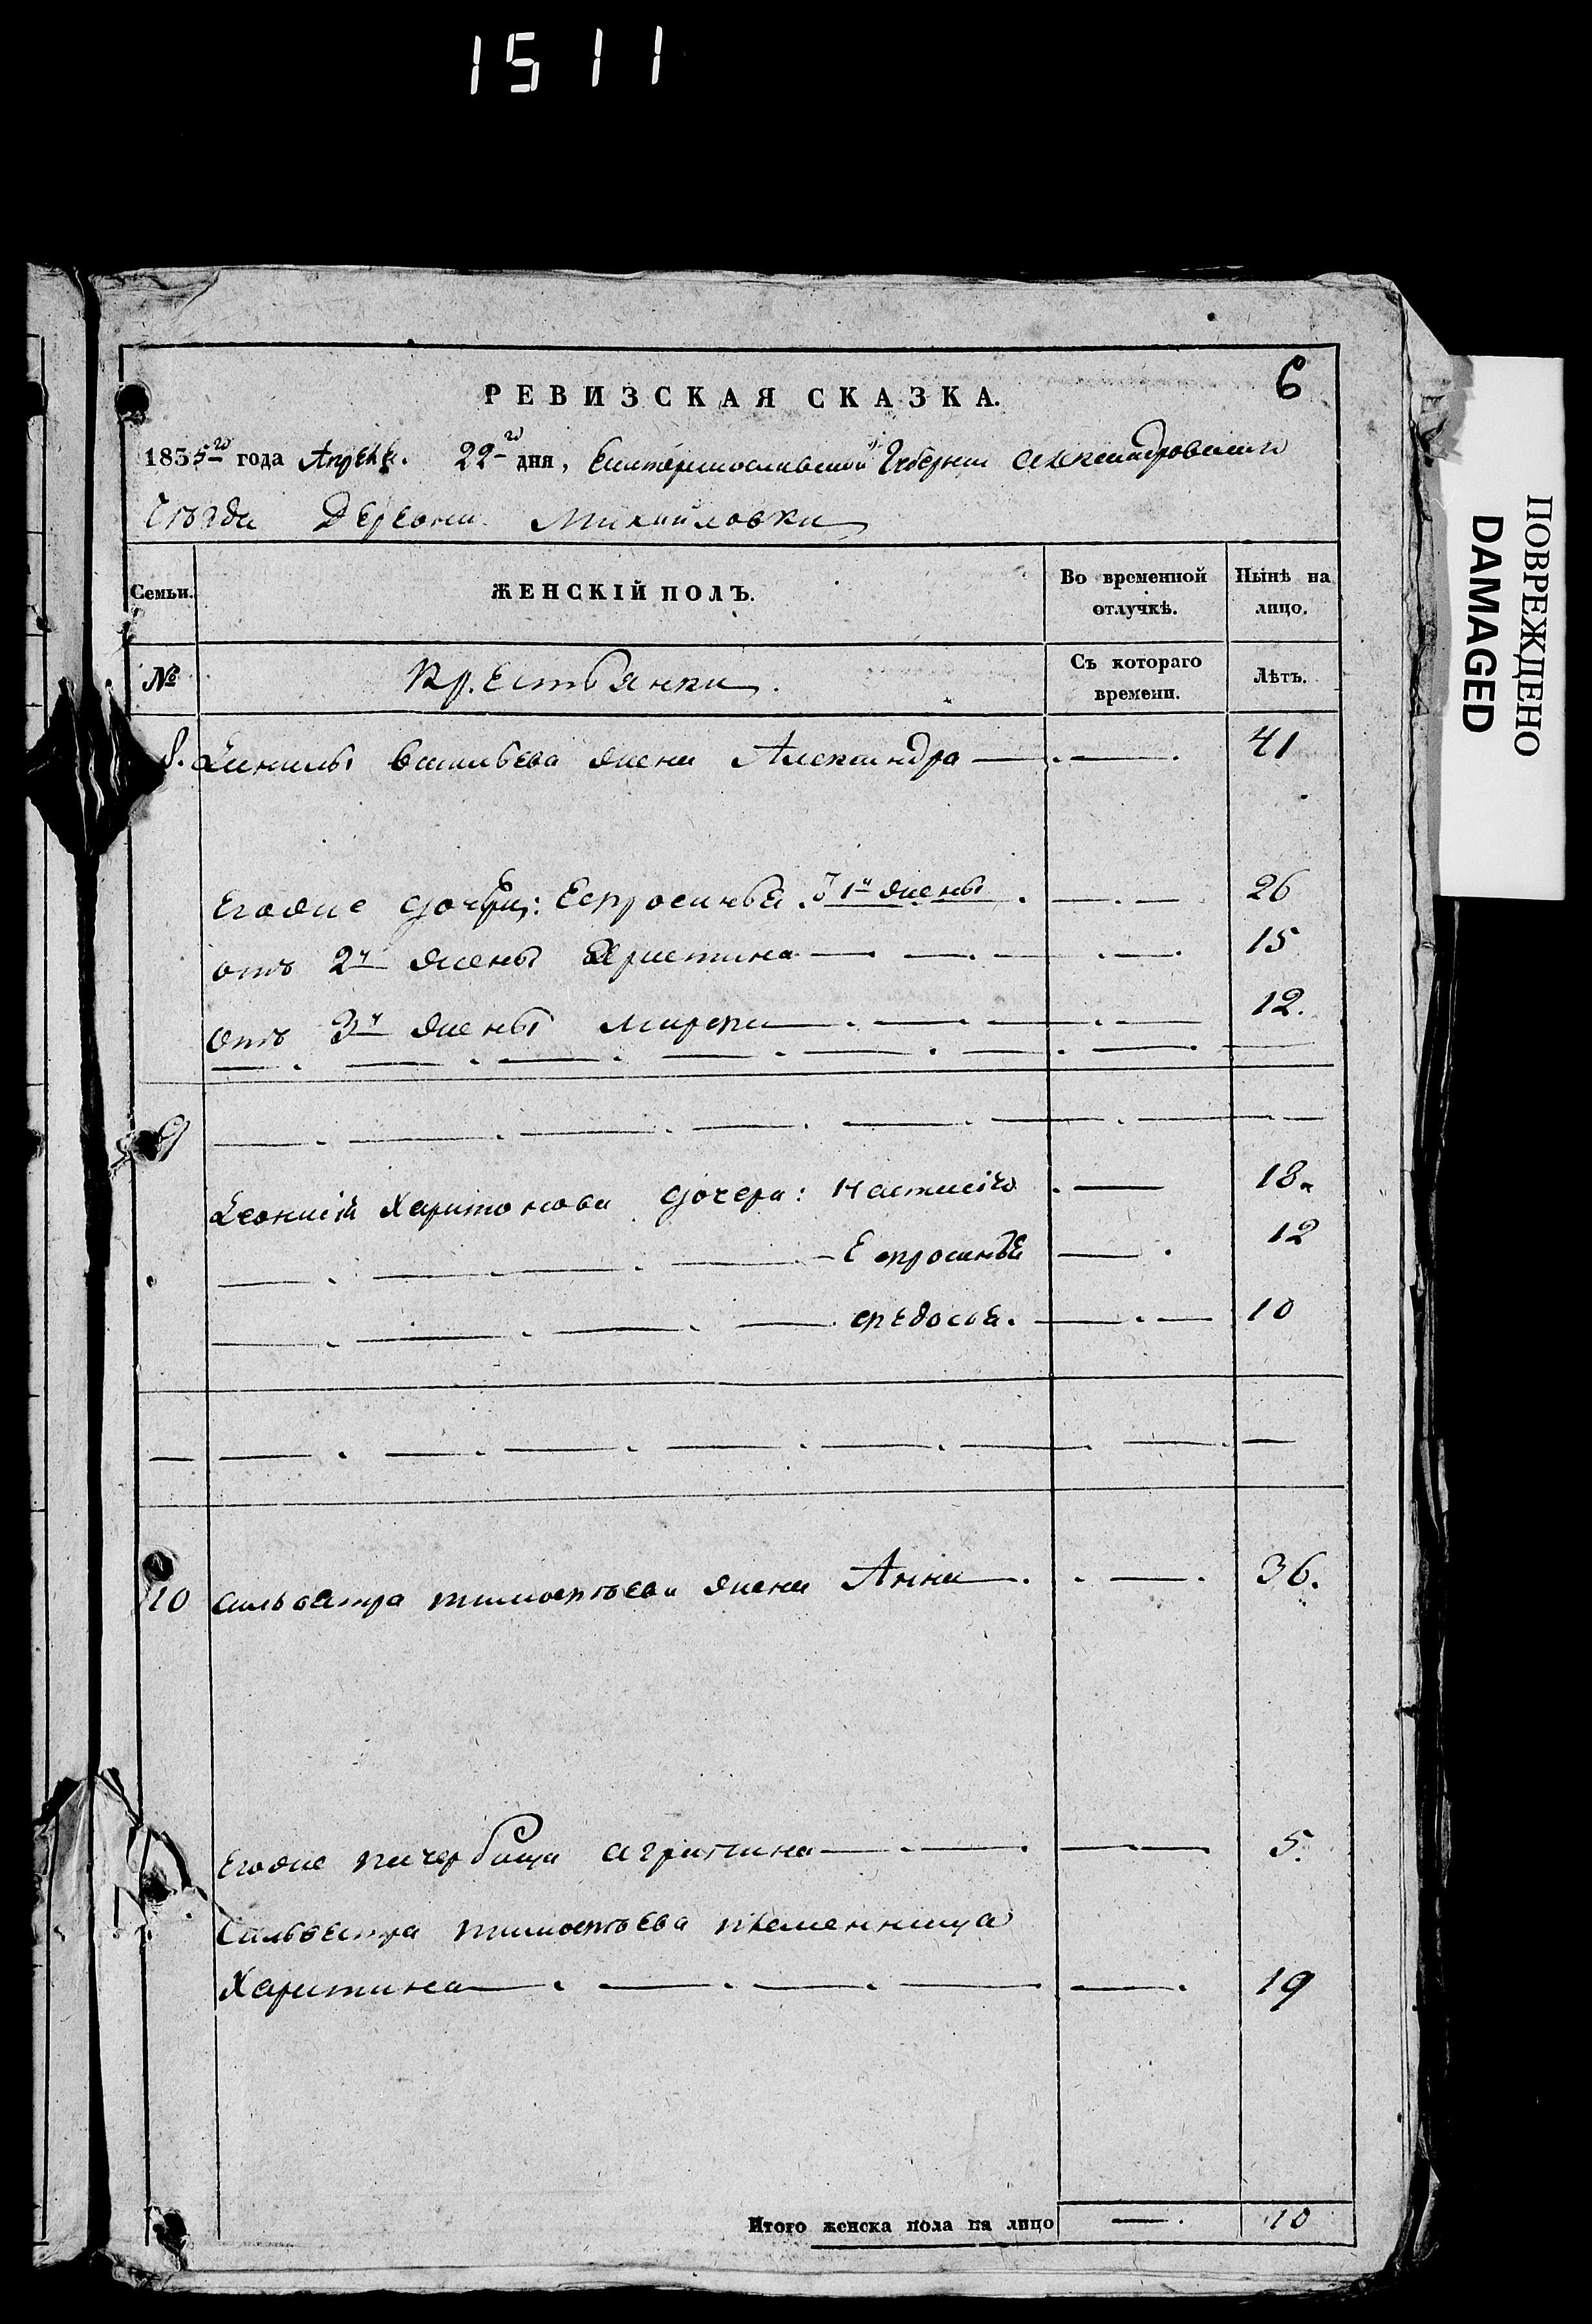 1511
6
РЕВИЗСКАЯ СКАЗКА.
1835го года Апреля 22го дня, Екатеринославской Губернии Александровского
Уезда Деревни Михайловки
Семьи. ЖЕНСКІЙ ПОЛЪ. Во временной отлучкѣ. Нынѣ на лицо.
№ Крестьянки. Съ котораго времени. Лѣтъ.
8. Данилы Васильева жена Александра 41
Егоже дочери: Ефросинья 1й жены 26
отъ 2й жены Христина 15
отъ 3й жены Марфа 12.
9
Леонтія Харитонова дочери: Настасія 18.
Ефросинья 12
Федосья. 10
10 Сильвестра Тимофѣева жена Анна 36.
Егоже Агрипина 5.
Сильвестра Тимофѣева племенница
Харитина 19
Итого женска пола на лицо 10
ПОВРЕЖДЕНО
DAMAGED